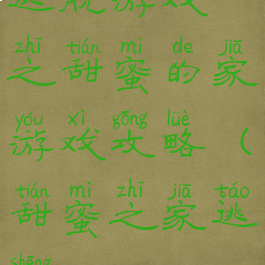 逃脱游戏
zhī tián mì de jiā
之甜蜜的家
yóu xì gōng lüè
游戏攻略（
tián mì zhī jiā táo
甜蜜之家逃
shēng